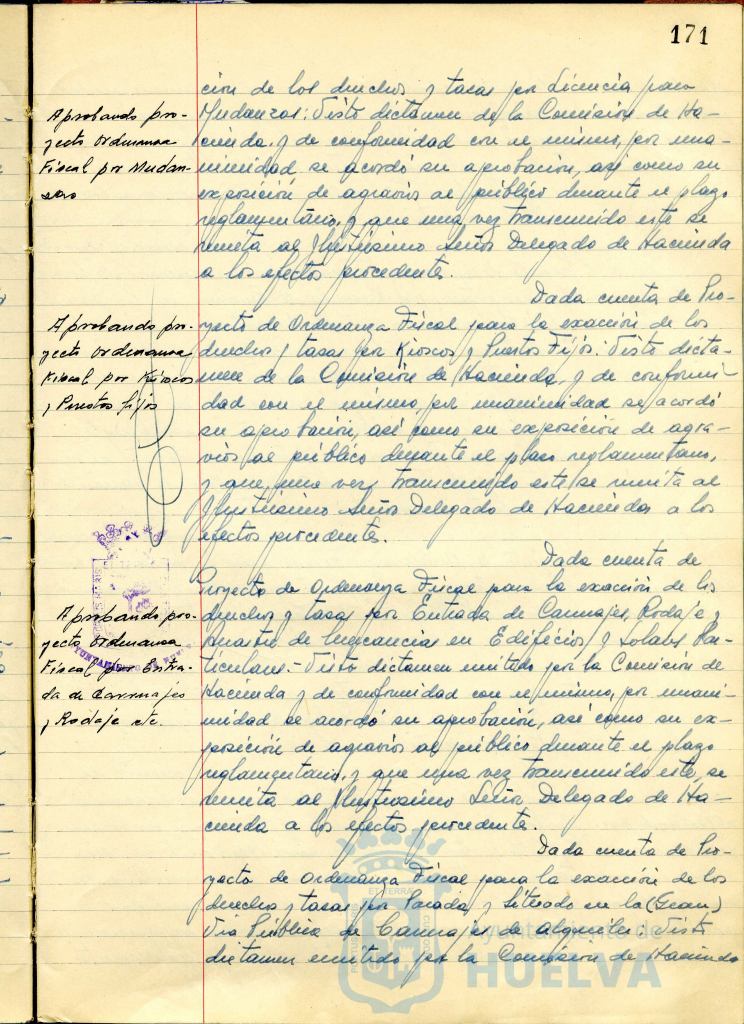 171
ción de los derechos y tasas por Licencia para
Mudanzas: Visto dictamen de la Comisión de Ha-
cienda, y de conformidad con el mismo, por una-
nimidad se acordó su aprobación, así como su
exposición de agravios al público durante el plazo
reglamentario, y que una vez transcurrido este se
remita al Ilustrísimo Señor Delegado de Hacienda
a los efectos procedentes.
Aprobando pro-
yecto Ordenanza
Fiscal por Mudan-
zas
Dada cuenta de Pro-
yecto de Ordenanza Fiscal para la exacción de los
derechos y tasas por Kioscos y Puestos Fijos: Visto dicta-
men de la Comisión de Hacienda, y de conformi-
dad con el mismo, por unanimidad se acordó
su aprobación, así como su exposición de agra-
vios al público durante el plazo reglamentario,
y que, una vez transcurrido este se remita al
Ilustrísimo Señor Delegado de Hacienda a los
efectos procedentes.
Aprobando pro-
yecto Ordenanza
Fiscal por Kioscos
y Puestos fijos
Dada cuenta de
Proyecto de Ordenanza Fiscal para la exacción de los
derechos y tasas por Entrada de Carruajes, Rodaje y
Arrastre de Mercancías en Edificios y Solares Par-
ticulares.- Visto dictamen emitido por la Comisión de
Hacienda y de conformidad con el mismo, por unani-
midad se acordó su aprobación, así como su ex-
posición de agravios al público durante el plazo
reglamentario, y que una vez transcurrido este, se
remita al Ilustrísimo Señor Delegado de Ha-
cienda a los efectos procedentes.
Aprobando pro-
yecto Ordenanza
Fiscal por Entra-
da de Carruajes
y Rodaje etc.
Dada cuenta de Pro-
yecto de Ordenanza Fiscal para la exacción de los
derechos y tasas por Parada y Situado en la (Gran)
Vía Pública de Carruajes de Alquiler: Visto
dictamen emitido por la Comisión de Hacienda
Ayuntamiento de
HUELVA